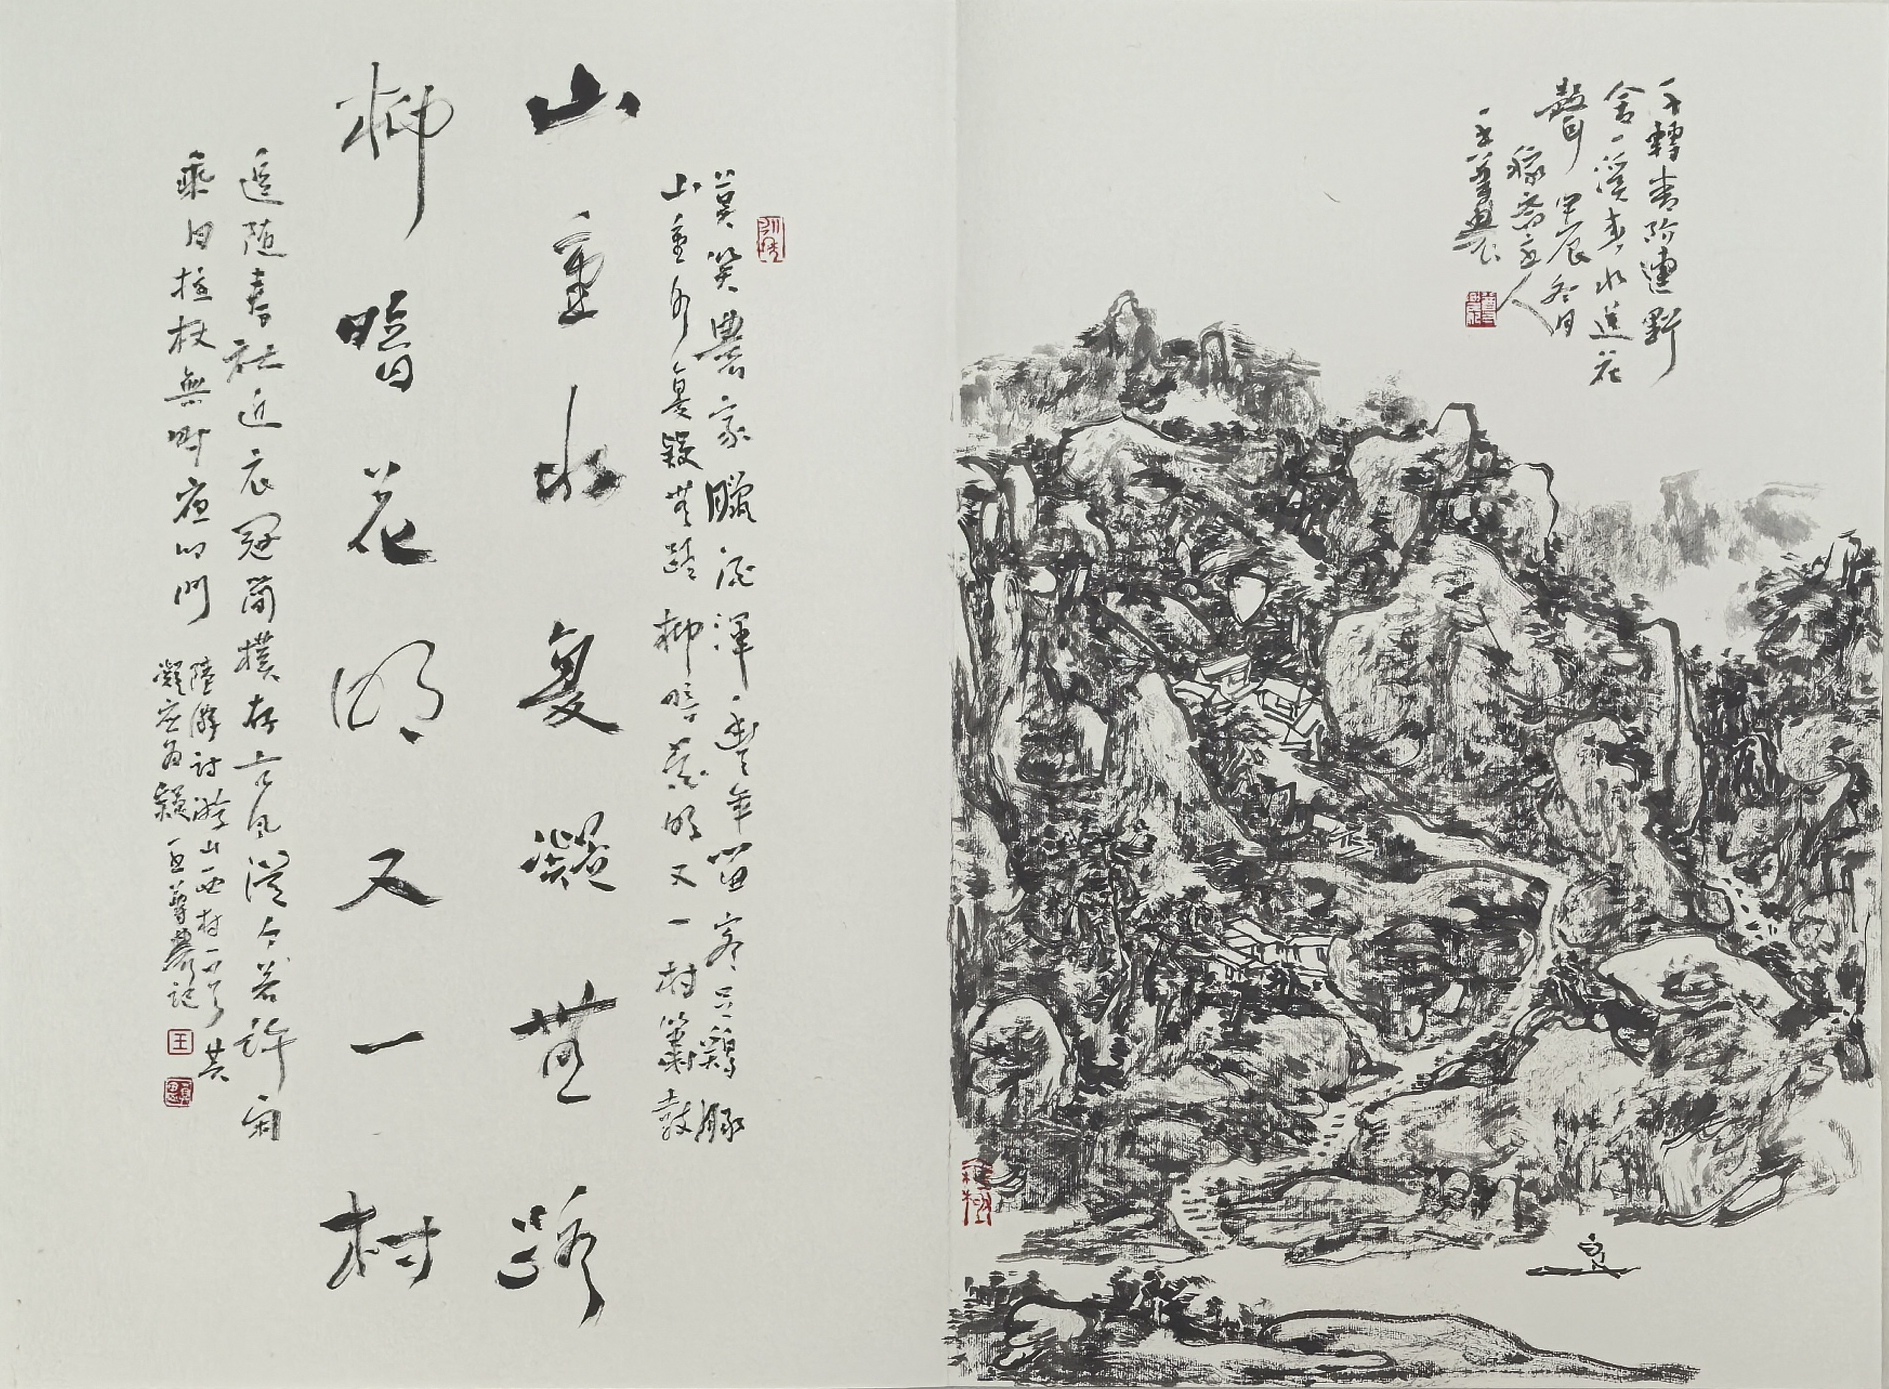 千轉青阶連野
舍一溪春水蓮花
聲 甲辰冬日
稼齋主人
王尊農
莫笑農家臘酒渾豐年留客足鷄豚
山重水复疑無路柳暗花明又一村簫鼓
山重水复凝無路
柳暗花明又一村
追隨春社近衣冠簡樸存古風從今若許閑
乘月拄杖無時夜叩門
陸游詩游山西村一首 其
凝應為疑 王尊農記
王